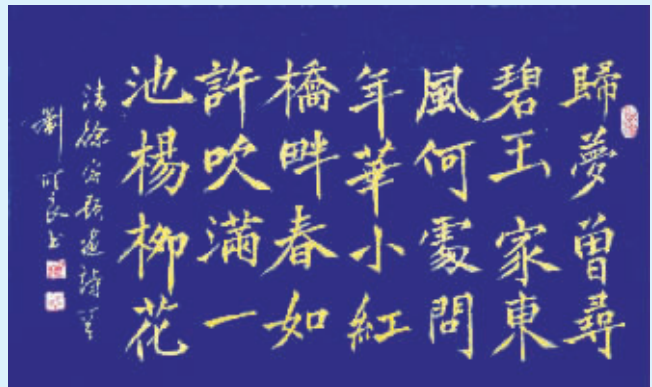 歸夢曾尋
碧玉家東
風何處問
年華小紅
橋畔春如
許吹滿一
池楊柳花
清徐詩
劉良书